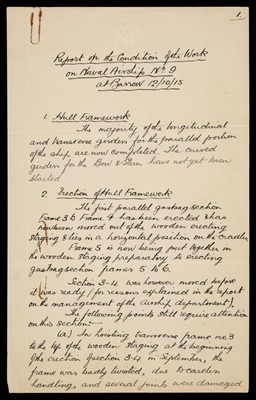 1.
Report on the Condition of the Work
on Naval Airship No 9
at Barrow 12/10/15
1. Hull Framework
The majority of the longitudinal
and transverse girders for the parallel portion
of the ship are now completed. The curved
girders for the Bow & Stern have not yet been
started.
2. Erection of Hull Framework
The first parallel gasbag section
Frame 3 to Frame 4 has been erected & has
now been moved out of the wooden erecting
staging & lies in a horizontal position on the cradles.
Frame 5 is now being put together in
the wooden staging preparatory to erecting
gasbag section frames 5 to 6.
Section 3-4 was however moved before
it was ready (for reasons explained in the report
on the management of the airship department).
The following points still require attention
on this section:-
(a) In hoisting transverse frame no 3
to the top of the wooden staging at the beginning
of the erection of section 3-4, in September, the
frame was badly twisted, due to careless
handling, and several joints were damaged